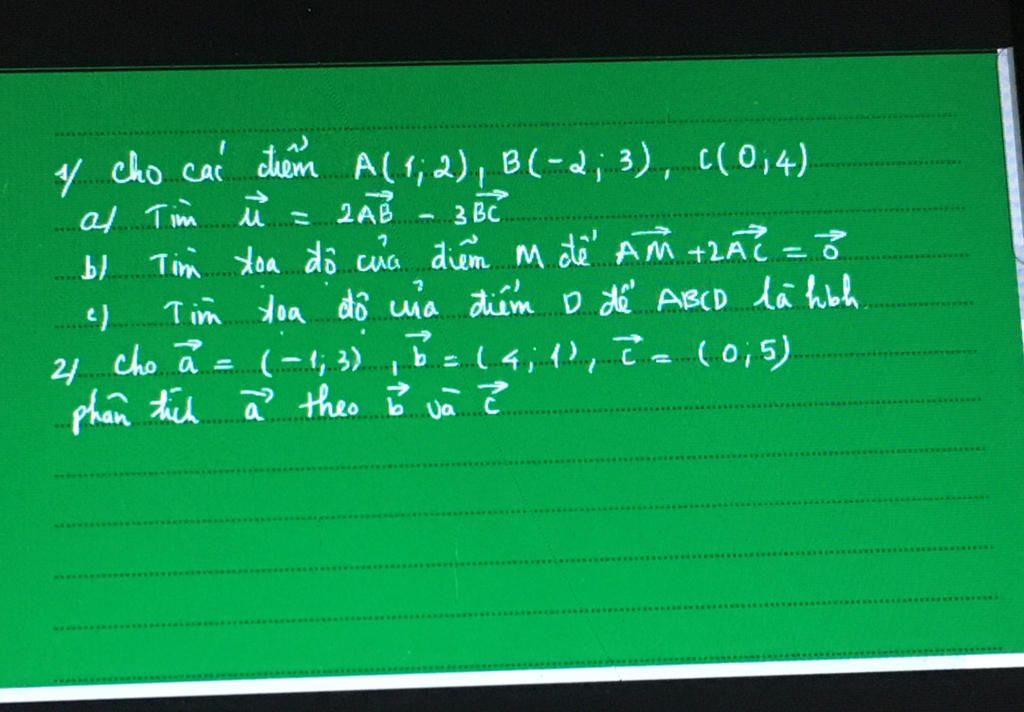 1/ cho các điểm A(1;2), B(-2;3), C(0;4)
a/ Tìm u⃗ = 2AB⃗ - 3BC⃗
b/ Tìm tọa độ của điểm M để AM⃗ + 2AC⃗ = 0⃗
c/ Tìm tọa độ của điểm D để ABCD là hbh.
2/ cho a⃗ = (-1;3), b⃗ = (4;1), c⃗ = (0;5)
phân tích a⃗ theo b⃗ và c⃗